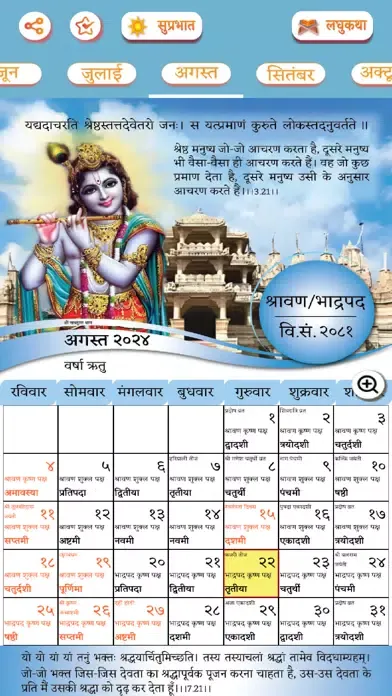 सुप्रभात
लघुकथा
जून
जुलाई
अगस्त
सितंबर
अक्टू
यद्यदाचरति श्रेष्ठस्तत्तदेवेतरो जनः। स यत्प्रमाणं कुरुते लोकस्तदनुवर्तते॥
श्रेष्ठ मनुष्य जो-जो आचरण करता है, दूसरे मनुष्य
भी वैसा-वैसा ही आचरण करते हैं। वह जो कुछ
प्रमाण देता है, दूसरे मनुष्य उसी के अनुसार
आचरण करते हैं।।3.21।।
श्रावण/भाद्रपद
वि.सं.२०८१
अगस्त २०२४
वर्षा ऋतु
रविवार सोमवार मंगलवार बुधवार गुरुवार शुक्रवार
प्रदोष व्रत १ शिवरात्रि व्रत २ ३
श्रावण कृष्ण पक्ष श्रावण कृष्ण पक्ष श्रावण कृष्ण पक्ष
द्वादशी त्रयोदशी चतुर्दशी
४ ५ ६ हरियाली तीज ७ श्री गणेश चतुर्थी व्रत ८ नाग पंचमी ९ कल्कि जयंती १०
श्रावण कृष्ण पक्ष श्रावण शुक्ल पक्ष श्रावण शुक्ल पक्ष श्रावण शुक्ल पक्ष श्रावण शुक्ल पक्ष श्रावण शुक्ल पक्ष श्रावण शुक्ल पक्ष
अमावस्या प्रतिपदा द्वितीया तृतीया चतुर्थी पंचमी षष्ठी
श्री तुलसीदास जयंती ११ १२ १३ १४ स्वतंत्रता दिवस १५ पुत्रदा एकादशी १६ १७
श्रावण शुक्ल पक्ष श्रावण शुक्ल पक्ष श्रावण शुक्ल पक्ष श्रावण शुक्ल पक्ष श्रावण शुक्ल पक्ष श्रावण शुक्ल पक्ष श्रावण शुक्ल पक्ष
सप्तमी अष्टमी नवमी नवमी दशमी एकादशी द्वादशी
१८ रक्षाबंधन १९ २० २१ कजली तीज २२ २३ श्री बलराम जयंती २४
श्रावण शुक्ल पक्ष श्रावण शुक्ल पक्ष भाद्रपद कृष्ण पक्ष भाद्रपद कृष्ण पक्ष भाद्रपद कृष्ण पक्ष भाद्रपद कृष्ण पक्ष भाद्रपद कृष्ण पक्ष
चतुर्दशी पूर्णिमा प्रतिपदा द्वितीया तृतीया चतुर्थी पंचमी
२५ श्री कृष्ण जन्माष्टमी २६ दही हांडी २७ २८ अजा एकादशी २९ ३० ३१
भाद्रपद कृष्ण पक्ष भाद्रपद कृष्ण पक्ष भाद्रपद कृष्ण पक्ष भाद्रपद कृष्ण पक्ष भाद्रपद कृष्ण पक्ष भाद्रपद कृष्ण पक्ष भाद्रपद कृष्ण पक्ष
षष्ठी सप्तमी अष्टमी दशमी एकादशी द्वादशी त्रयोदशी
यो यो यां यां तनुं भक्तः श्रद्धयार्चितुमिच्छति। तस्य तस्याचलां श्रद्धां तामेव विदधाम्यहम्।
जो-जो भक्त जिस-जिस देवता का श्रद्धापूर्वक पूजन करना चाहता है, उस-उस देवता के
प्रति मैं उसकी श्रद्धा को दृढ़ कर देता हूँ।।17.21।।